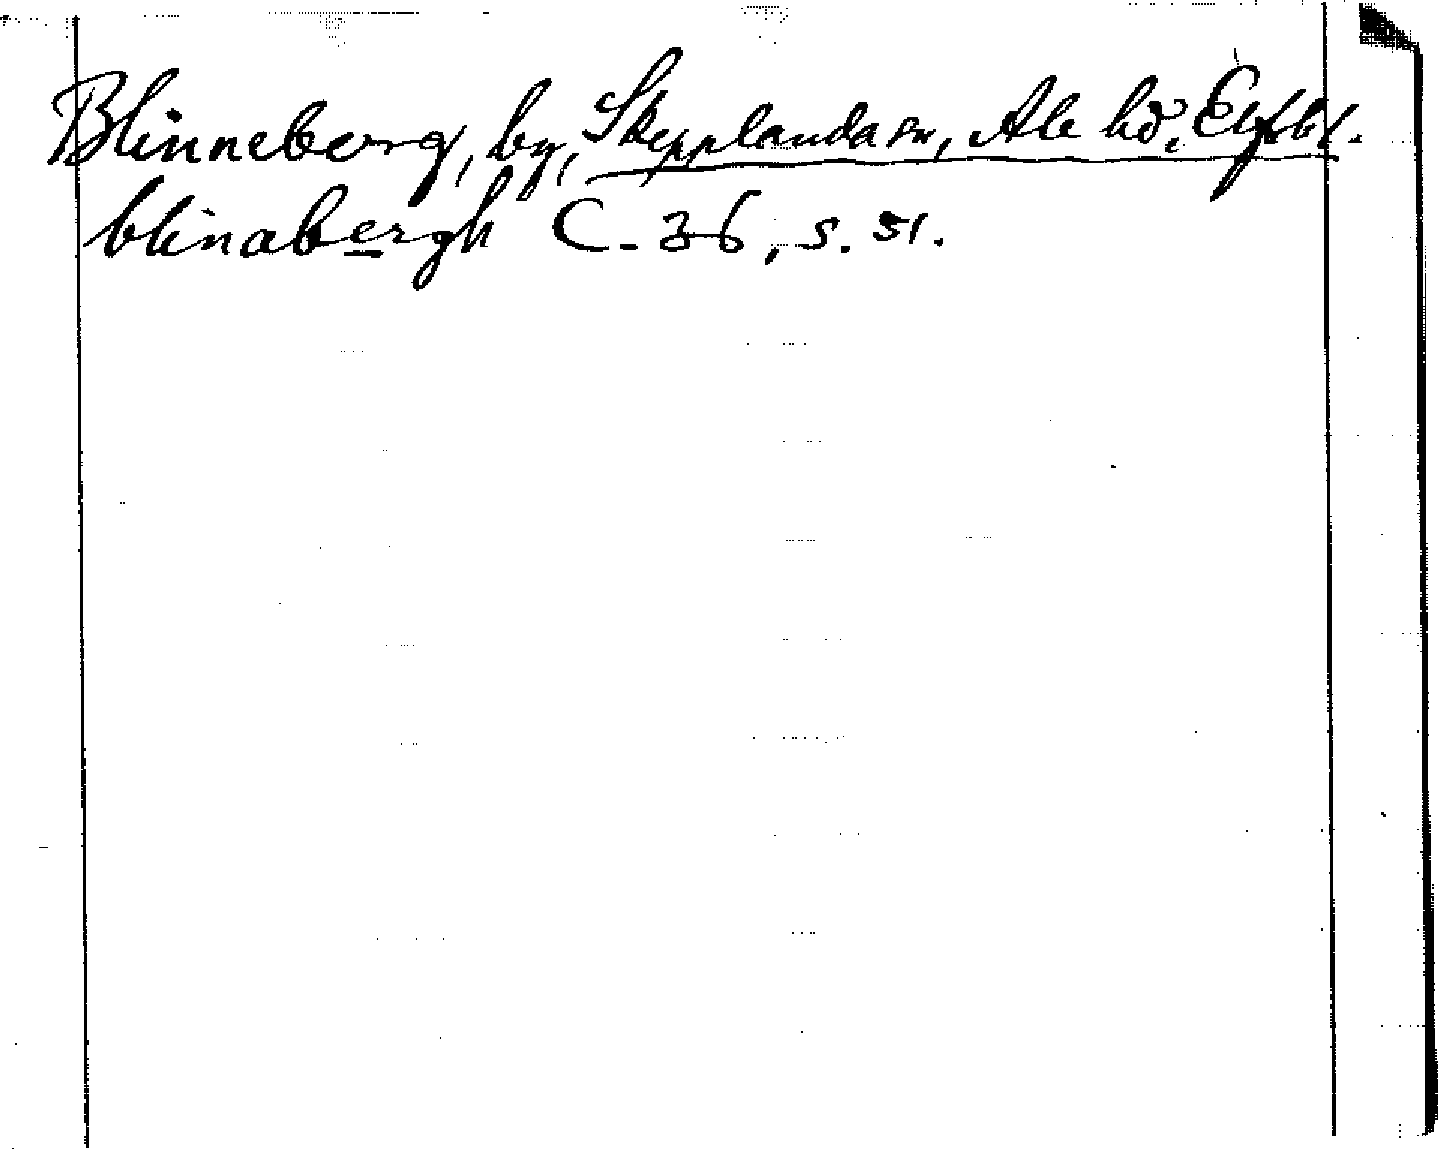 Blinneberg, by, Skepplanda sn, Ale hd, Elfsbl.
blinabergh C-36, s. 51.